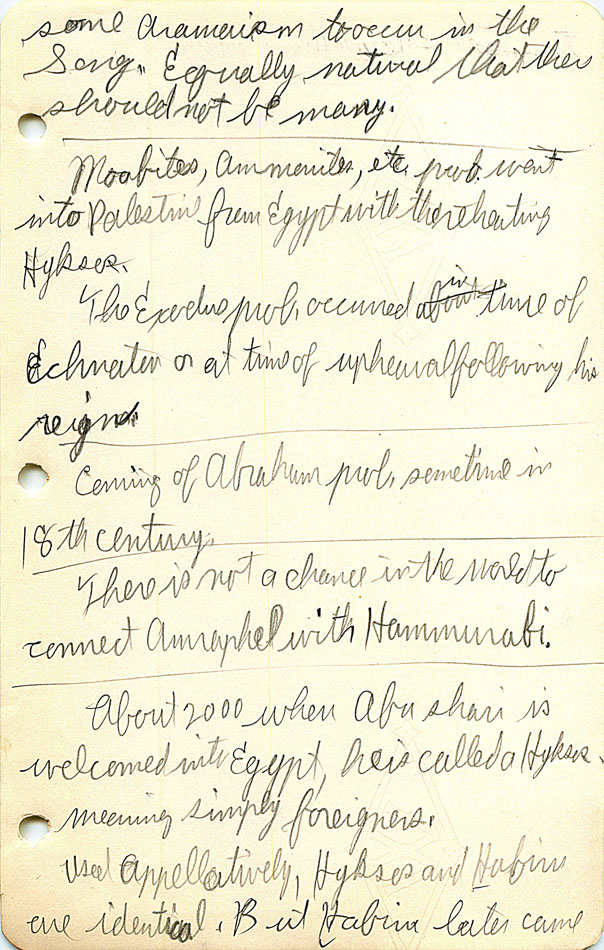 some Aramaism to occur in the
Song. Equally natural that there
should not be many.
Moabites, Ammonites, etc. prob. went
into Palestine from Egypt with the retreating
Hyksos.
The Exodus prob. occurred about in time of
Echnaton or at time of upheaval following his
reign.
Coming of Abraham prob. sometime in
18th century.
There is not a chance in the world to
connect Amraphel with Hammurabi.
About 2000 when Abushari is
welcomed into Egypt, he is called a Hyksos.
meaning simply foreigners.
Used appellatively, Hyksos and Habiru
are identical. But Habiru later came